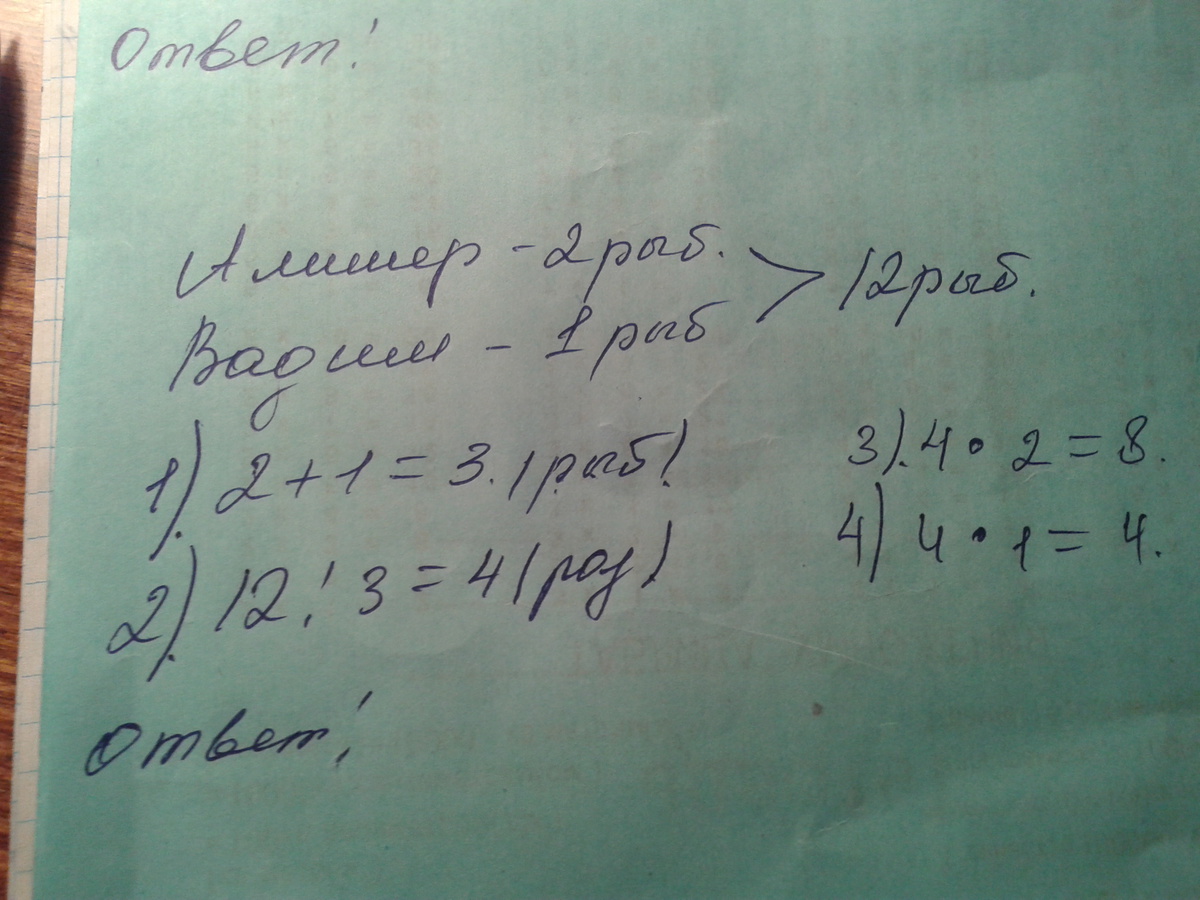 Ответ:
Алишер - 2 рыб.
Вадим - 1 рыб
> 12 рыб.
1). 2 + 1 = 3. (рыб)
2). 12 : 3 = 4 (раз)
3). 4 • 2 = 8.
4) 4 • 1 = 4.
Ответ: